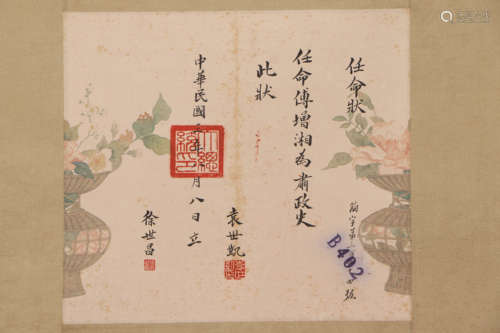 任命狀
任命傅增湘為肅政史
此狀
中華民國年月八日立
袁世凱
徐世昌
B402